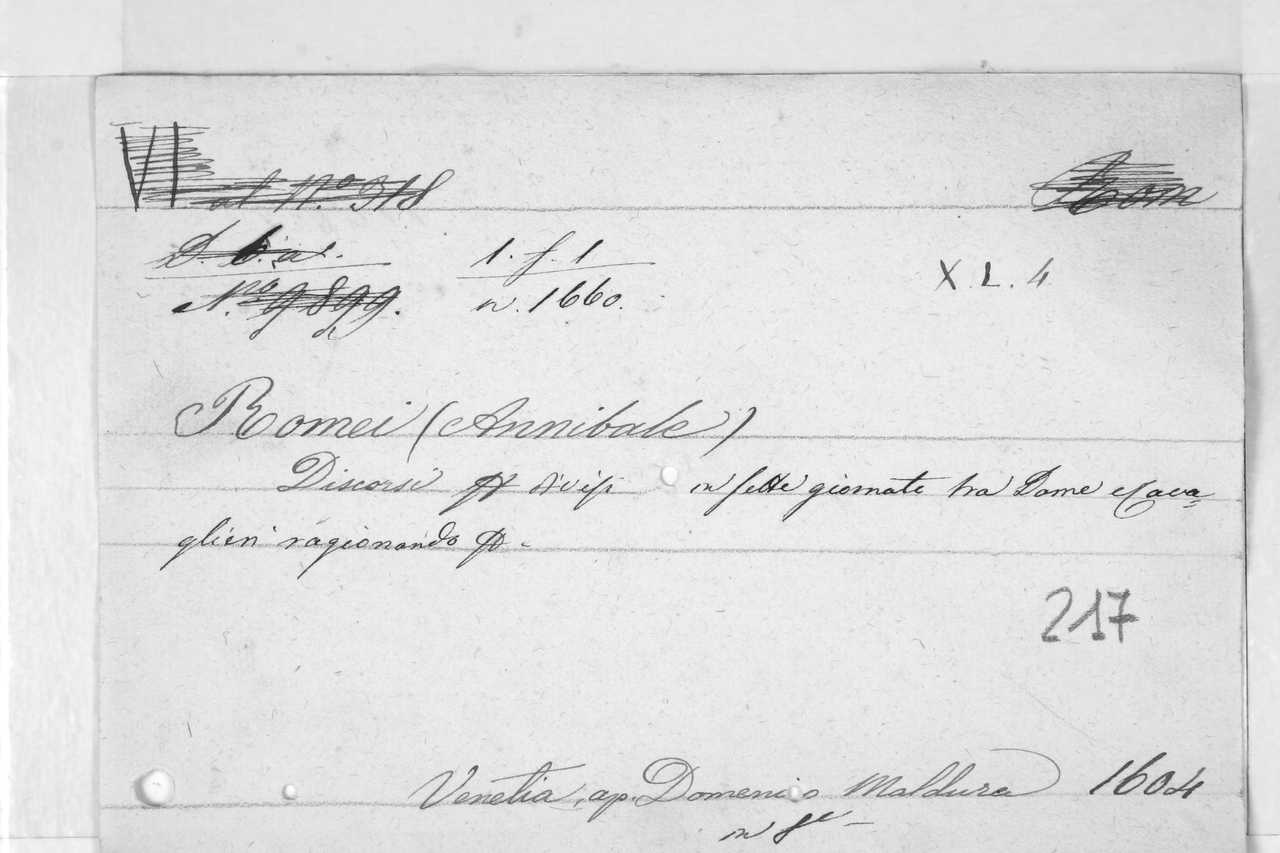 VI al N.º 318
D. b. al. 1. f. 1 X. L. 4
N.ro 9899. n. 1660.
Romei (Annibale)
Discorsi divisi in sette giornate tra Dame e Cava=
glieri ragionando
217
Venetia, ap. Domenico Maldura 1604
in 8º